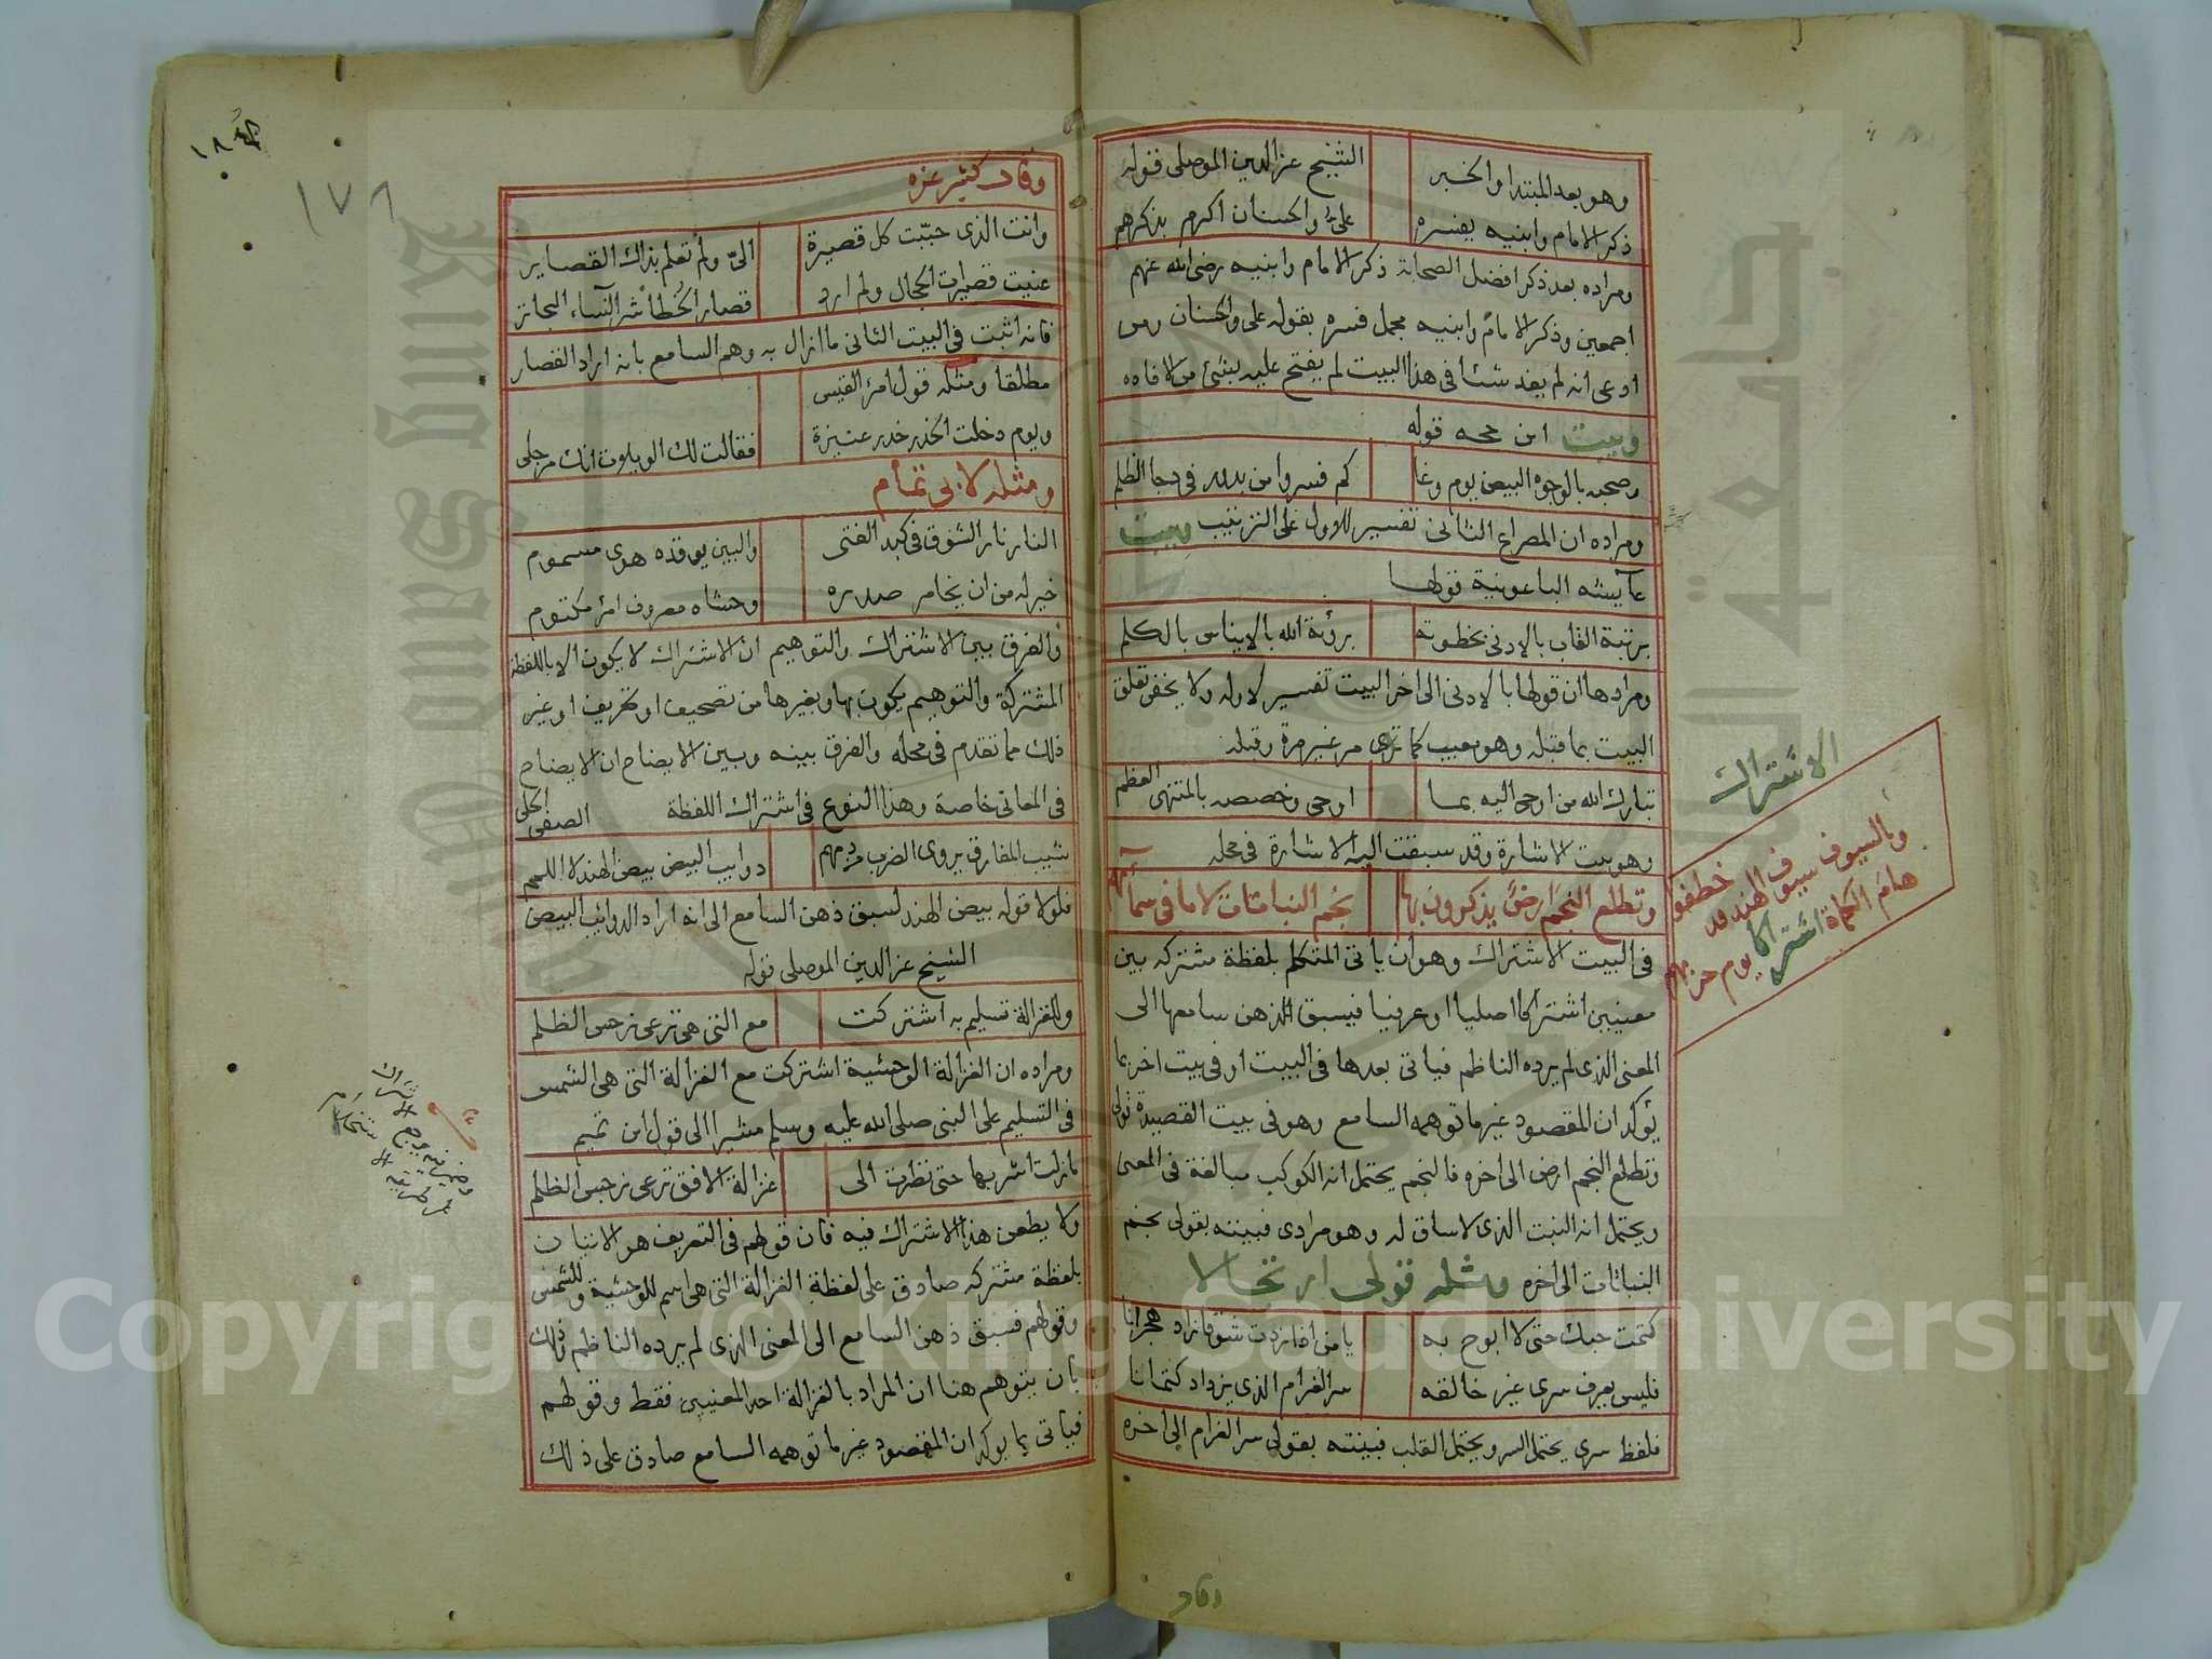 وهو بعد المبتدا والخبر الشيخ عز الدين الموصلى قوله
ذكر الامام وابنيه يفسره على والحسنان اكرم بذكرهم
ومراده بعد ذكر افضل الصحابة ذكر الامام وابنيه رضى الله عنهم
اجمعين وذكر الامام وابنيه مجمل فسره بقوله على والحسنان ومن
ادعى انه لم يفد شئا فى هذا البيت لم يفتح عليه بشئ من الافاده
وبيت ابن حجه قوله
وصحبه بالوجوه البيض يوم وغا كم فسروا من بدر فى دجا الظلم
ومراده ان المصراع الثانى تفسير للاول على الترتيب وبيت
عايشه الباعونية قولها
برتبة القاب بالادنى بخطوته برؤية الله بالايناس بالكلم
ومرادها ان قولها بالادنى الى اخر البيت تفسير لاوله ولا يخفى تعلق
البيت بما قبله وهو معيب كما ترى مر غير مرة وقبله
تبارك الله من اوحى اليه بما اوحى وخصصه بالمنتهى العظم
وهو بيت الاشارة وقد سبقت اليه الاشارة فى محله
وتطلع النجم ارض يذكرون بها نجم النباتات لا ما فى سمائهم
فى البيت الاشتراك وهو ان ياتى المتكلم بلفظة مشتركه بين
معنيين اشتراكا اصليا او عرفيا فيسبق الذهن سامعها الى
المعنى الذى لم يرده الناظم فياتى بعدها فى البيت او فى بيت اخر بما
يؤكد ان المقصود غير ما توهمه السامع وهو فى بيت القصيدة قولى
وتطلع النجم ارض الى اخره فالنجم يحتمل انه الكوكب مبالغة فى المعنى
ويحتمل انه النبت الذى لا ساق له وهو مرادى فبينته بقولى نجم
النباتات الى اخره ومثله قولى ارتجالا
كتمت حبك حتى لا ابوح به يا من اذا زدت شوقا زاد هجرانا
فليس يعرف سرى غير خالقه سر الغرام الذى يزداد كتمانا
فلفظ سرى يحتمل السر ويحتمل القلب فبينته بقولى سر الغرام الى اخره
وقال
الاشتراك
وبالسيوف سيوف الهند قد خطفوا
هام الكماة اشتراكا يوم حربهم
١٧٨
وقال كثير عزه
وانت الذى حببت كل قصيرة الىّ ولم تعلم بذاك القصاير
عنيت قصيرات الحجال ولم ارد قصار الخطا شر النساء البحاتر
فانه اثبت فى البيت الثانى ما ازال به وهم السامع بانه اراد القصار
مطلقا ومثله قول امرئ القيس
ويوم دخلت الخدر خدر عنيزة فقالت لك الويلات انك مرجلى
ومثله لابى تمام
النار نار الشوق فى كبد الفتى والبين يوقده هوى مسموم
خير له من ان يخامر صدره وحشاه معروف امرئ مكتوم
والفرق بين الاشتراك والتوهيم ان الاشتراك لا يكون الا باللفظة
المشتركة والتوهيم يكون بها وبغيرها من تصحيف او تحريف او غير
ذلك مما تقدم فى محله والفرق بينه وبين الايضاح ان الايضاح
فى المعانى خاصة وهذا النوع فى اشتراك اللفظة الصفى الحلى
شيب المفارق يروى الضرب من دمهم ذوايب البيض بيض الهند لا اللمم
فلولا قوله بيض الهند لسبق ذهن السامع الى انه اراد الذوائب البيض
الشيخ عز الدين الموصلى قوله
وللغزالة تسليم به اشتركت مع التى هى ترعى نرجس الظلم
ومراده ان الغزالة الوحشية اشتركت مع الغزالة التى هى الشمس
فى التسليم على النبى صلى الله عليه وسلم مشيرا الى قول ابن تميم
مازلت اشربها حتى نظرت الى غزالة الافق ترعى نرجس الظلم
ولا يطعن هذا الاشتراك فيه فان قولهم فى التعريف هو الاتيان
بلفظة مشتركه صادق على لفظة الغزالة التى هى اسم للوحشية وللشمس
وقولهم فسبق ذهن السامع الى المعنى الذى لم يرده الناظم وذلك
بان يتوهم هنا ان المراد بالغزالة احد المعنيين فقط وقولهم
فياتى بما يوكد ان المقصود غير ما توهمه السامع صادق على ذلك
Copyright © King Saud University